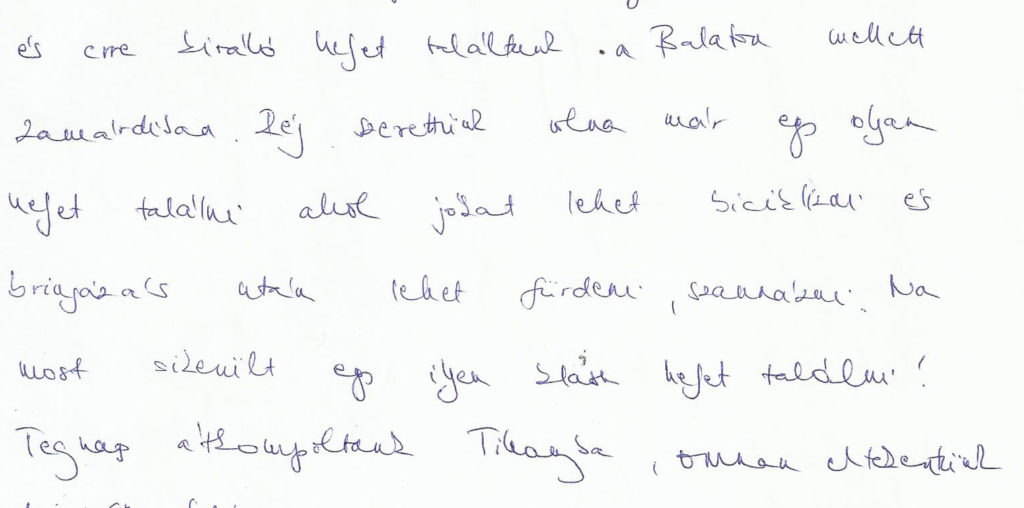 és erre kiváló helyet találtunk a Balaton mellett
Zamárdiban. Rég szerettünk volna már egy olyan
helyet találni ahol jókat lehet biciklizni és
bringázás után lehet fürdeni, szaunázni. Na
most sikerült egy ilyen helyet találni!
Tegnap átkompoltunk Tihanyba, onnan eltekertünk